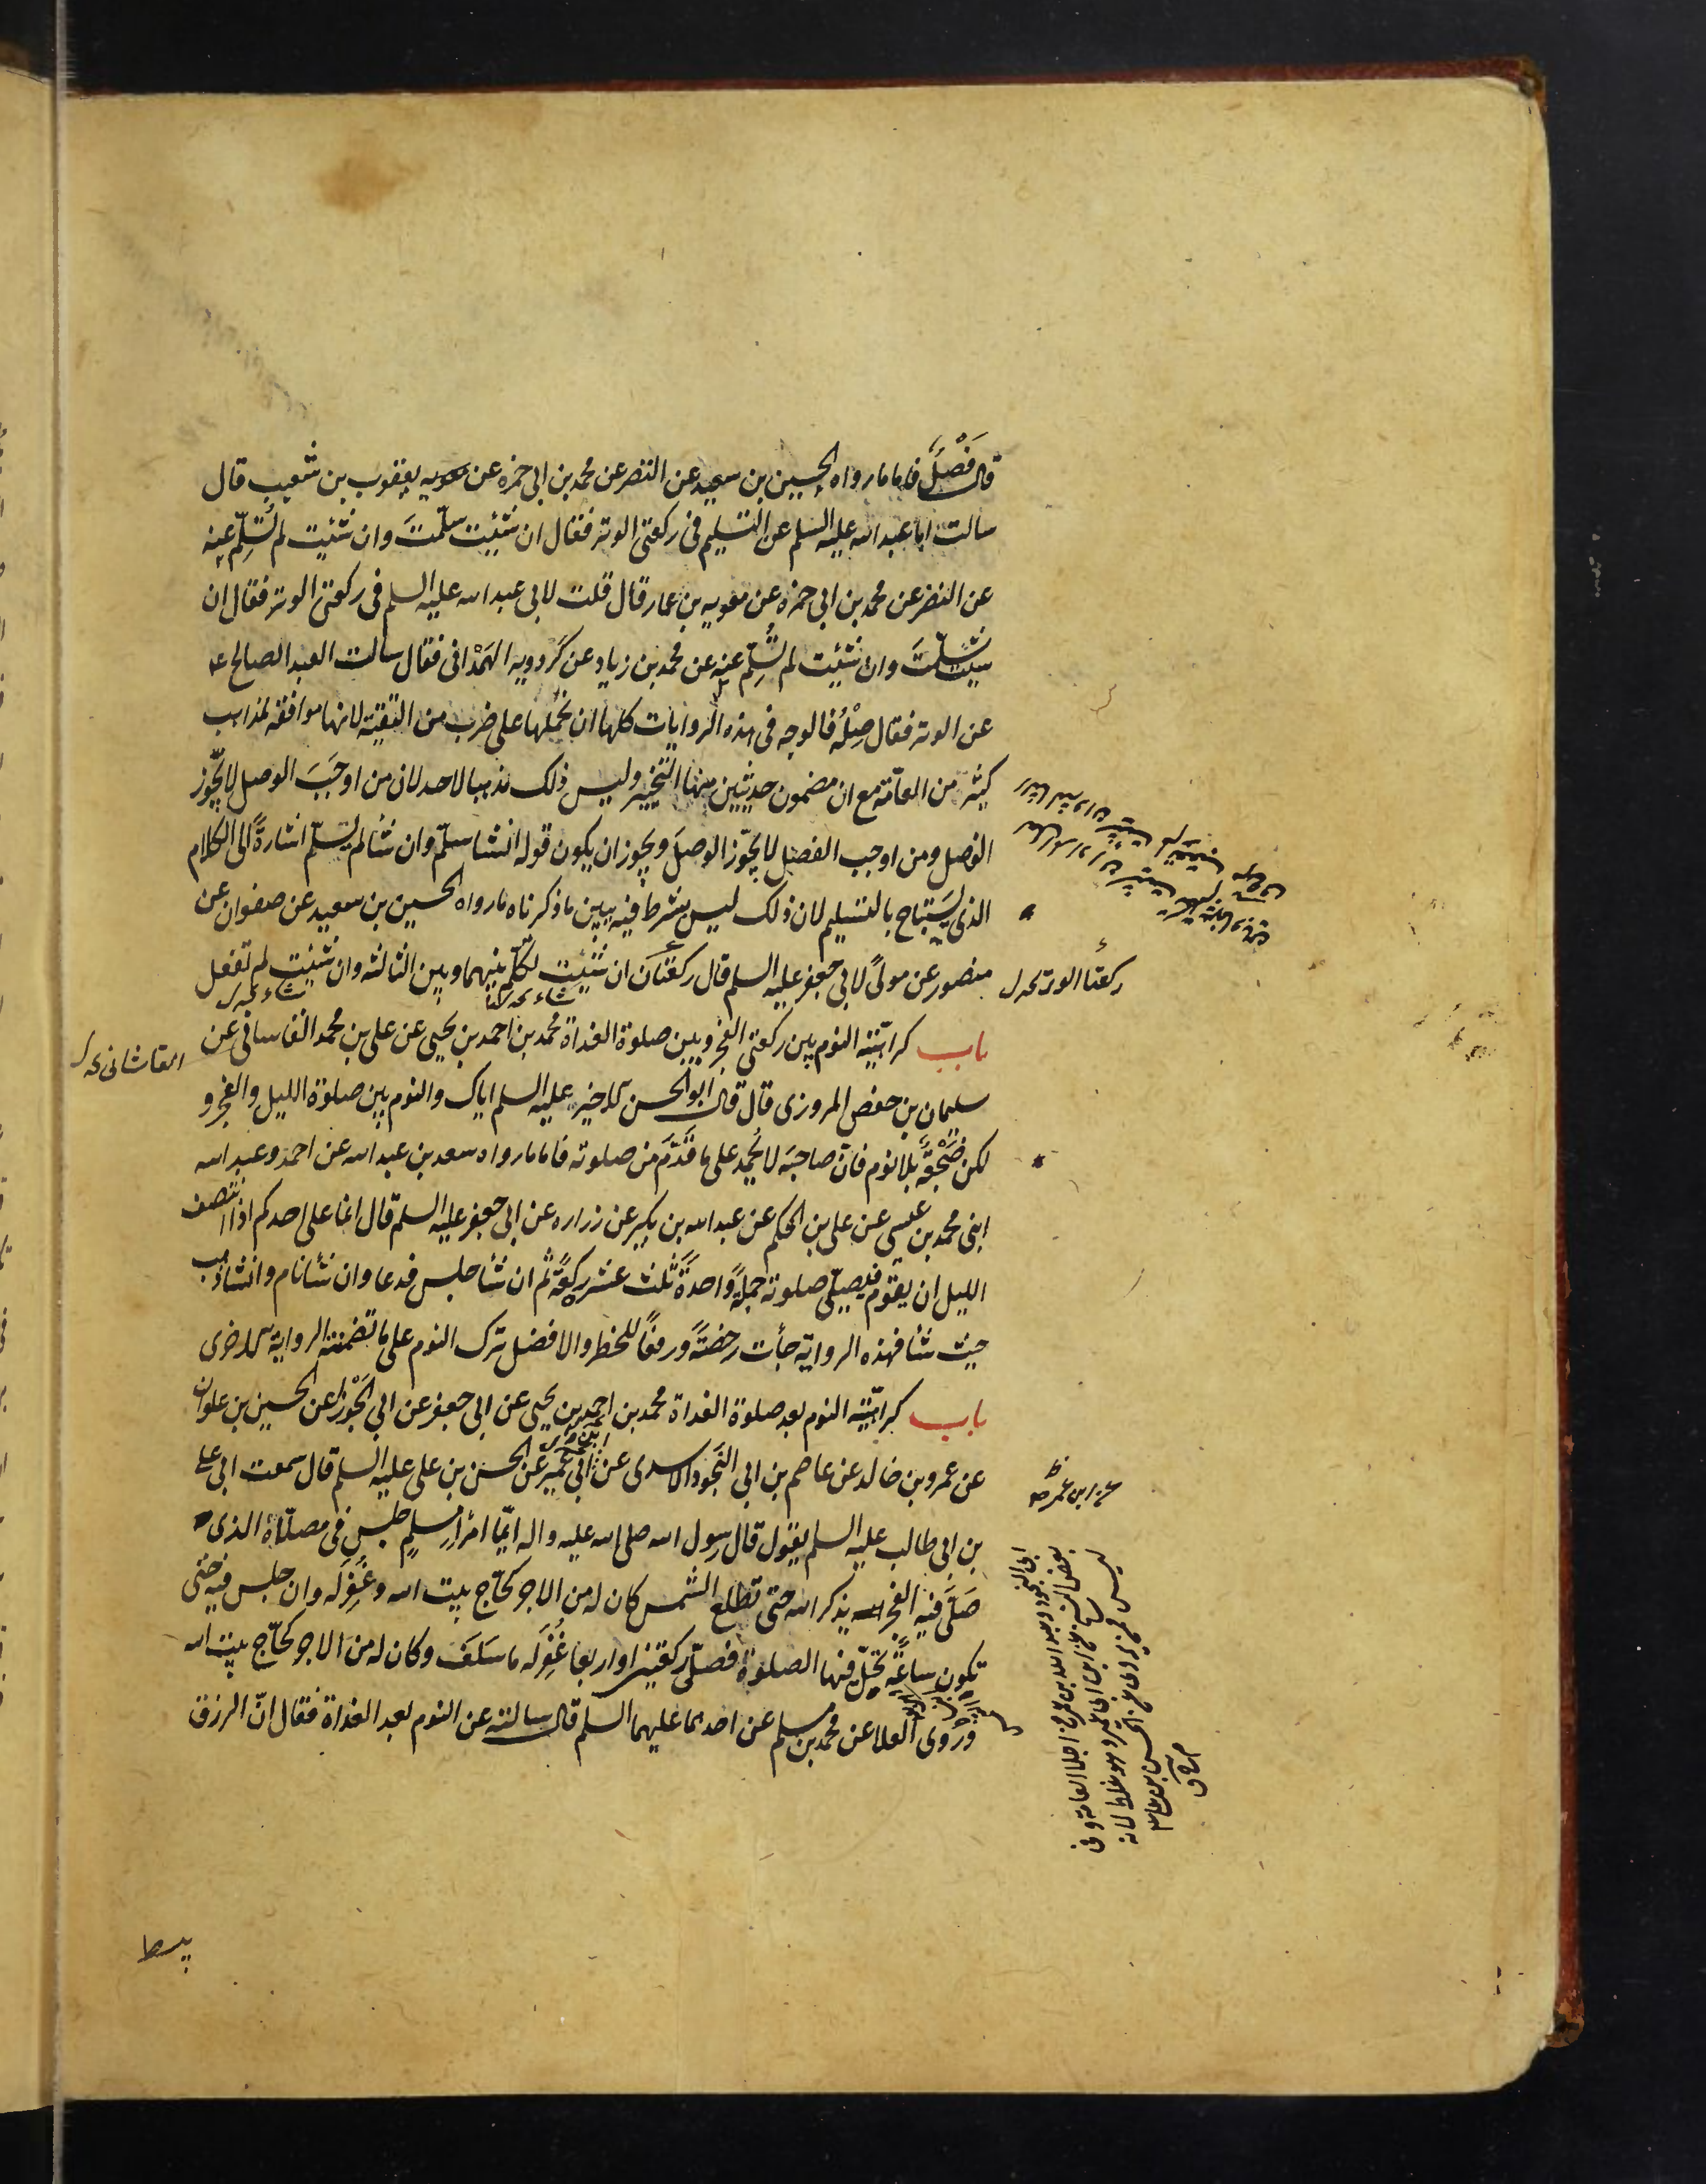 قال فَصْلٌ فاما ما رواه الحسين بن سعيد عن النضر عن محمد بن ابى حمزه عن يعقوب بن شعيب قال
سالت ابا عبد الله عليه السلم عن التسليم فى ركعتى الوتر فقال ان شئت سلّمتَ وان شئت لم تُسلّم عنه
عن النضر عن محمد بن ابى حمزه عن معويه بن عمار قال قلت لابى عبد الله عليه السلم فى ركعتى الوتر فقال ان
شئت سلّمتَ وان شئت لم تُسلّم عنه عن محمد بن زياد عن كردويه الهَمْدانى فقال سالت العبد الصالح ع
عن الوتر فقال صِلْهُ فالوجه فى هذه الروايات كلها ان نحملها على ضرب من التقيّه لانها موافقه لمذاهب
كثير من العامّه مع ان مضمون حديثين منها التخيير وليس ذلك مذهبا لاحد لان من اوجَبَ الوصل لا يجوّز
الفصل ومن اوجب الفصل لا يجوّز الوصلَ ويجوز ان يكون قوله ان شا سلّم وان شا لم يسلّم اشارةً الى الكلام
الذى يستباح بالتسليم لان ذلك ليس بشرط فيه يبين ما ذكرناه ما رواه الحسين بن سعيد عن صفوان عن
منصور عن مولىً لابى جعفر عليه السلم قال ركعتان ان شئت تكلّم بينهما وبين الثالثه وان شئت لم تفعل
ركعتا الوتر
باب كراهيّة النوم بين ركعتى الفجر وبين صلوة الغداة محمد بن احمد بن يحيى عن على بن محمد القاسانى عن
القاشانى
سليمان بن حفص المروزى قال قال ابو الحسن الاخير عليه السلم اياك والنوم بين صلوة الليل والفجر و
لكن ضَجْعَةً بلا نوم فانّ صاحبَه لا يُحمد على ما قدّم من صلوته فاما ما رواه سعد بن عبد الله عن احمد وعبد الله
ابنى محمد بن عيسى عن على بن الحكم عن عبد الله بن بكير عن زراره عن ابى جعفر عليه السلم قال انما على احدكم اذا انتصف
الليل ان يقوم فيصلّى صلوته جملةً واحدةً ثلث عشر ركعةً ثم ان شا جلس فدعا وان شا نام وان شا ذهب
حيث شا فهذه الرواية جأت رخصةً ورفعاً للحظر والافضل ترك النوم على ما تضمّنته الرواية الاخرى
باب كراهيّة النوم بعد صلوة الغداة محمد بن احمد بن يحيى عن ابى جعفر عن ابى الجَوْزا عن الحسين بن علوان
عن عمرو بن خالد عن عاصم بن ابى النَجود الاسدى عن ابى عُمير عن الحسن بن على عليه السلم قال سمعت ابى على
بن ابى طالب عليه السلم يقول قال رسول الله صلى الله عليه واله ايّما امرإٍ مسلمٍ جلس فى مصلّاهُ الذى
صَلّى فيه الفجر يذكر الله حتى تطلع الشمس كان له من الاجر كحاجّ بيت الله وغُفِرَ له وان جلس فيه حتى
تكون ساعةٌ تحلّ فيها الصلوة فصلّى ركعتين او اربعا غُفِرَ له ما سَلَفَ وكان له من الاجر كحاجّ بيت الله
وروى العلا عن محمد بن مسلم عن احدهما عليهما السلم قال سالته عن النوم بعد الغداة فقال انّ الرزق
يبسط